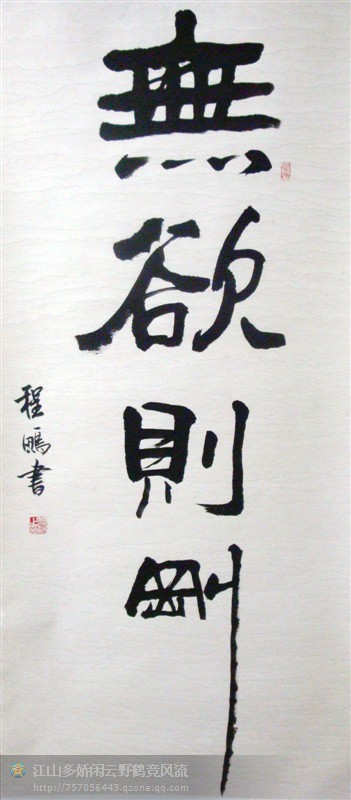 無欲則剛
程鵬書
江山多娇闲云野鹤竞风流
http://757056443.qzone.qq.com